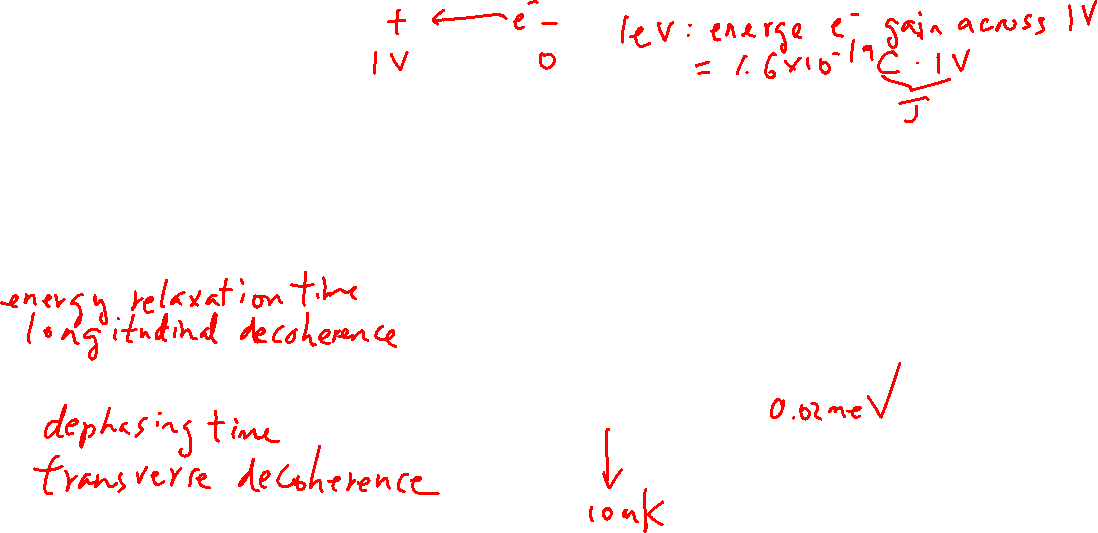 + ← e⁻ −
1V 0
1eV: energe e⁻ gain across 1V
= 1.6×10⁻¹⁹ C · 1V
J
energy relaxation time
longitudinal decoherence
0.02meV
dephasing time
transverse decoherence
↓
10mK